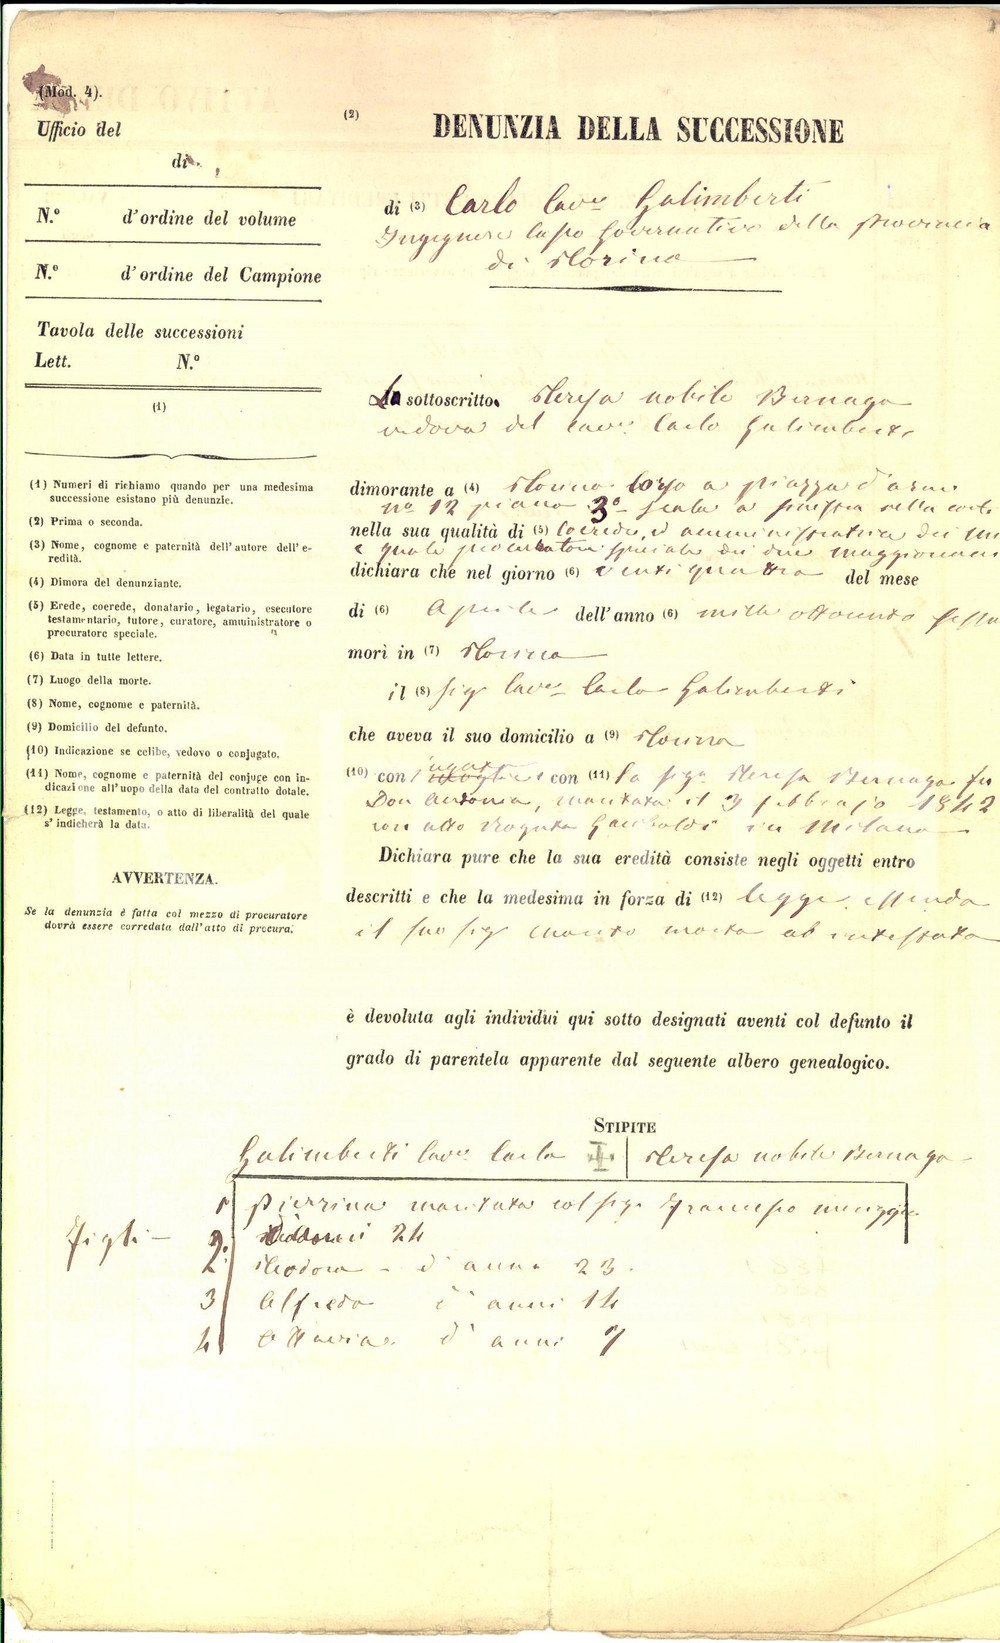 (Mod. 4).
Ufficio del
di
N.º d'ordine del volume
N.º d'ordine del Campione
Tavola delle successioni
Lett. N.º
(1)
(1) Numeri di richiamo quando per una medesima
successione esistano più denunzie.
(2) Prima o seconda.
(3) Nome, cognome e paternità dell'autore dell'e-
redità.
(4) Dimora del denunziante.
(5) Erede, coerede, donatario, legatario, esecutore
testamentario, tutore, curatore, amministratore o
procuratore speciale.
(6) Data in tutte lettere.
(7) Luogo della morte.
(8) Nome, cognome e paternità.
(9) Domicilio del defunto.
(10) Indicazione se celibe, vedovo o conjugato.
(11) Nome, cognome e paternità del conjuge con in-
dicazione all'uopo della data del contratto dotale.
(12) Legge, testamento, o atto di liberalità del quale
s'indicherà la data.
AVVERTENZA.
Se la denunzia è fatta col mezzo di procuratore
dovrà essere corredata dall'atto di procura.
(2) DENUNZIA DELLA SUCCESSIONE
di (3) Carlo Cav.e Galimberti
Ingegnere Capo Governativo della provincia
di Torino
La sottoscritto Teresa nobile Bernago
vedova del Cav.e Carlo Galimberti
dimorante a (4) Torino Corso a piazza d'armi
n.o 12 piano 3º scala a sinistra nella corte
nella sua qualità di (5) Coerede, e amministratrice dei
e quale procuratore speciale dei due maggiorenni
dichiara che nel giorno (6) venti quattro del mese
di (6) Aprile dell'anno (6) mille ottocento
morì in (7) Torino
il (8) sig Cav.e Carlo Galimberti
che aveva il suo domicilio a (9) Torino
(10) conjugato con (11) la sig.a Teresa Bernago fu
Don Antonio, maritata il 3 febbrajo 1842
con atto Rogato Garibaldi in Milano
Dichiara pure che la sua eredità consiste negli oggetti entro
descritti e che la medesima in forza di (12) legge essendo
il suo sig marito morto ab intestato
è devoluta agli individui qui sotto designati aventi col defunto il
grado di parentela apparente dal seguente albero genealogico.
STIPITE
Galimberti Cav.e Carlo I Teresa nobile Bernago
Figli
1 Pierrina maritata col sig. Francesco
d'anni 24
2º Teodora - d'anni 23.
3 Alfredo d'anni 14
4 Ottavia d'anni 7